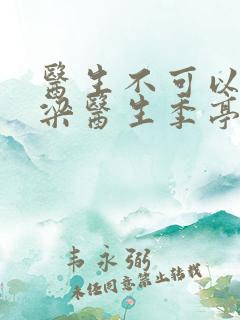 醫生不可以
梁醫生季亭
韦永弼
未经同意禁止转载